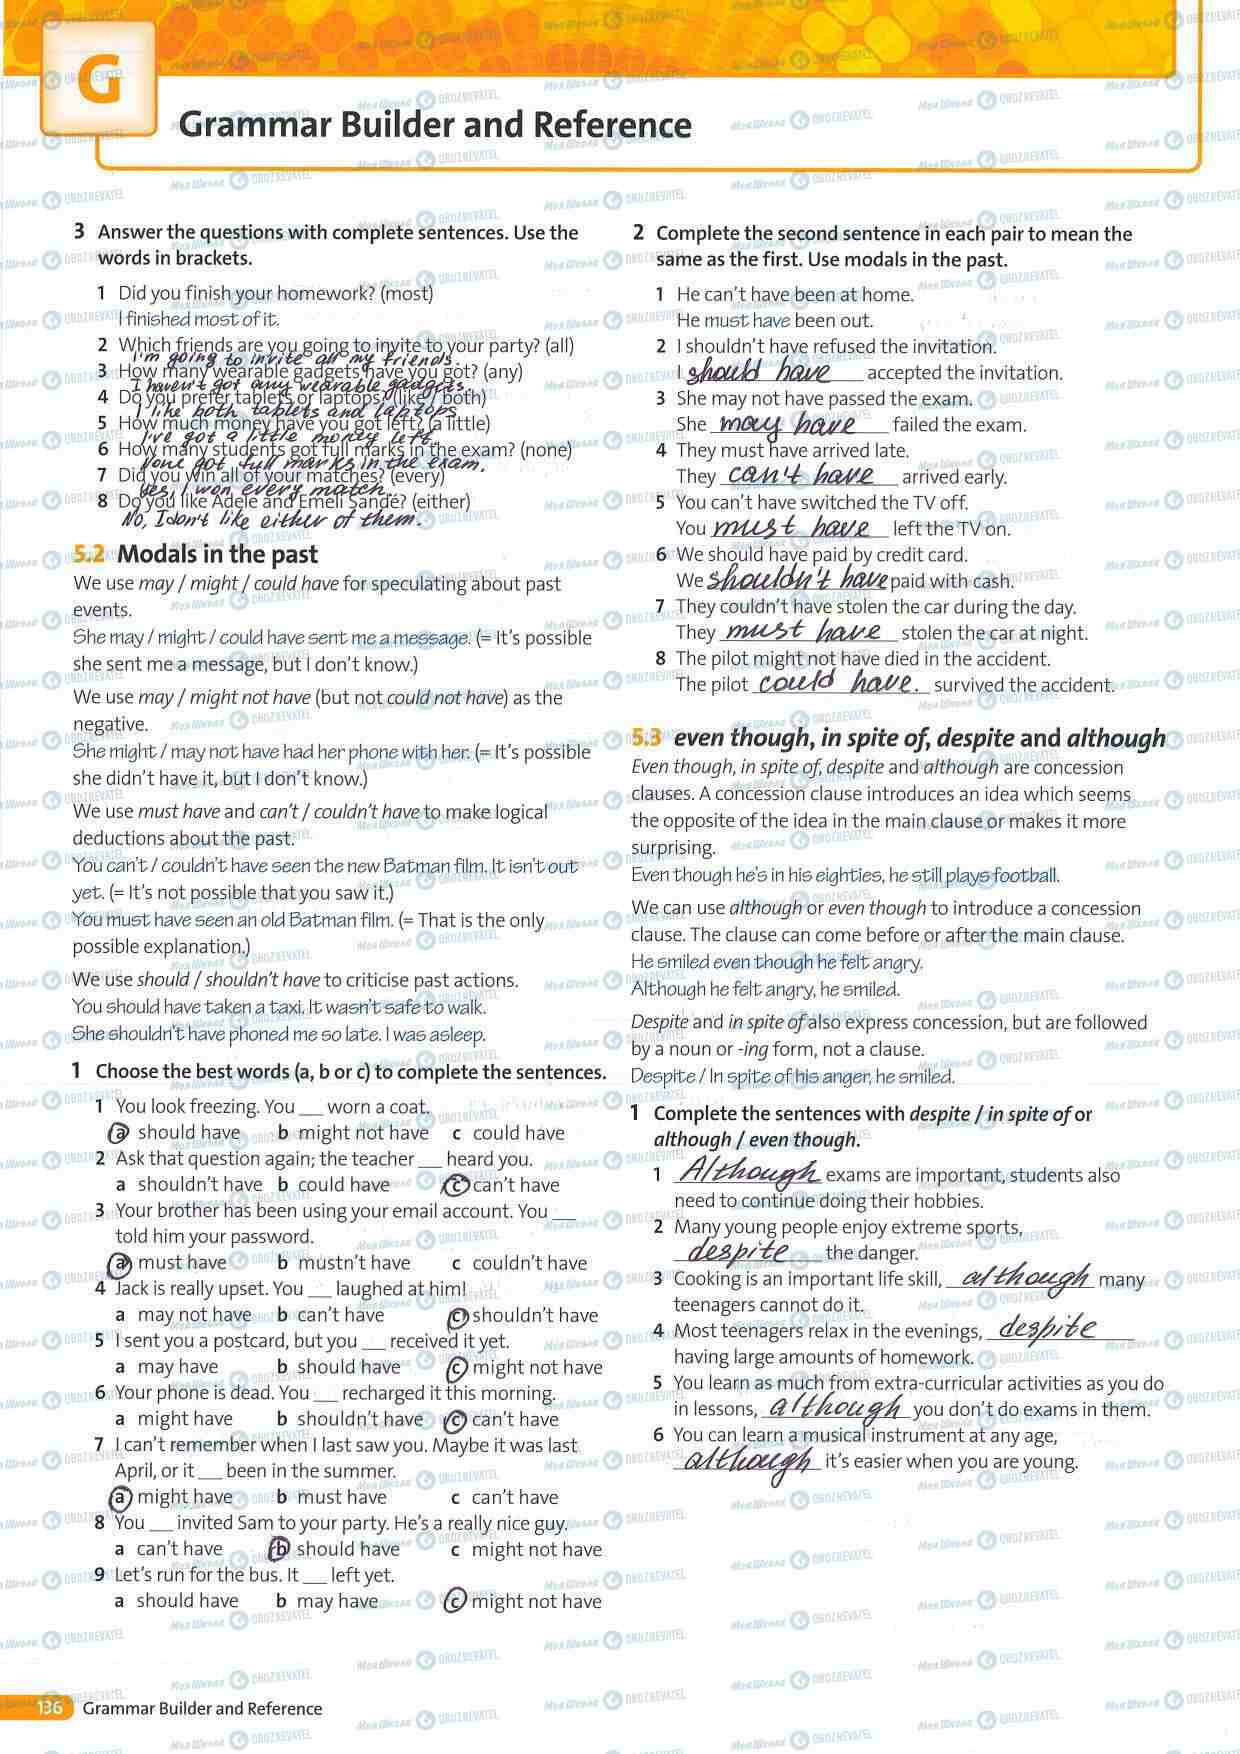 G
Grammar Builder and Reference
3 Answer the questions with complete sentences. Use the
words in brackets.
1 Did you finish your homework? (most)
I finished most of it.
2 Which friends are you going to invite to your party? (all)
I'm going to invite all my friends.
3 How many wearable gadgets have you got? (any)
I haven't got any wearable gadgets.
4 Do you prefer tablets or laptops? (like / both)
I like both tablets and laptops
5 How much money have you got left? (a little)
I've got a little money left.
6 How many students got full marks in the exam? (none)
None got full marks in the exam.
7 Did you win all of your matches? (every)
Yes, I won every match.
8 Do you like Adele and Emeli Sandé? (either)
No, I don't like either of them.
5.2 Modals in the past
We use may / might / could have for speculating about past
events.
She may / might / could have sent me a message. (= It's possible
she sent me a message, but I don't know.)
We use may / might not have (but not could not have) as the
negative.
She might / may not have had her phone with her. (= It's possible
she didn't have it, but I don't know.)
We use must have and can't / couldn't have to make logical
deductions about the past.
You can't / couldn't have seen the new Batman film. It isn't out
yet. (= It's not possible that you saw it.)
You must have seen an old Batman film. (= That is the only
possible explanation.)
We use should / shouldn't have to criticise past actions.
You should have taken a taxi. It wasn't safe to walk.
She shouldn't have phoned me so late. I was asleep.
1 Choose the best words (a, b or c) to complete the sentences.
1 You look freezing. You ___ worn a coat.
a should have b might not have c could have
2 Ask that question again; the teacher ___ heard you.
a shouldn't have b could have c can't have
3 Your brother has been using your email account. You ___
told him your password.
a must have b mustn't have c couldn't have
4 Jack is really upset. You ___ laughed at him!
a may not have b can't have c shouldn't have
5 I sent you a postcard, but you ___ received it yet.
a may have b should have c might not have
6 Your phone is dead. You ___ recharged it this morning.
a might have b shouldn't have c can't have
7 I can't remember when I last saw you. Maybe it was last
April, or it ___ been in the summer.
a might have b must have c can't have
8 You ___ invited Sam to your party. He's a really nice guy.
a can't have b should have c might not have
9 Let's run for the bus. It ___ left yet.
a should have b may have c might not have
2 Complete the second sentence in each pair to mean the
same as the first. Use modals in the past.
1 He can't have been at home.
He must have been out.
2 I shouldn't have refused the invitation.
I should have accepted the invitation.
3 She may not have passed the exam.
She may have failed the exam.
4 They must have arrived late.
They can't have arrived early.
5 You can't have switched the TV off.
You must have left the TV on.
6 We should have paid by credit card.
We shouldn't have paid with cash.
7 They couldn't have stolen the car during the day.
They must have stolen the car at night.
8 The pilot might not have died in the accident.
The pilot could have. survived the accident.
5.3 even though, in spite of, despite and although
Even though, in spite of, despite and although are concession
clauses. A concession clause introduces an idea which seems
the opposite of the idea in the main clause or makes it more
surprising.
Even though he's in his eighties, he still plays football.
We can use although or even though to introduce a concession
clause. The clause can come before or after the main clause.
He smiled even though he felt angry.
Although he felt angry, he smiled.
Despite and in spite of also express concession, but are followed
by a noun or -ing form, not a clause.
Despite / In spite of his anger, he smiled.
1 Complete the sentences with despite / in spite of or
although / even though.
1 Although exams are important, students also
need to continue doing their hobbies.
2 Many young people enjoy extreme sports,
despite the danger.
3 Cooking is an important life skill, although many
teenagers cannot do it.
4 Most teenagers relax in the evenings, despite
having large amounts of homework.
5 You learn as much from extra-curricular activities as you do
in lessons, although you don't do exams in them.
6 You can learn a musical instrument at any age,
although it's easier when you are young.
136 Grammar Builder and Reference